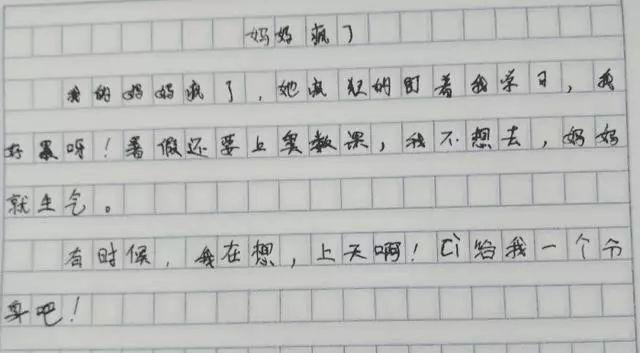 妈妈疯了
我的妈妈疯了，她疯狂的盯着我学习，我
好累呀！暑假还要上奥数课，我不想去，妈妈
就生气。
有时候，我在想，上天啊！cì给我一个分
身吧！